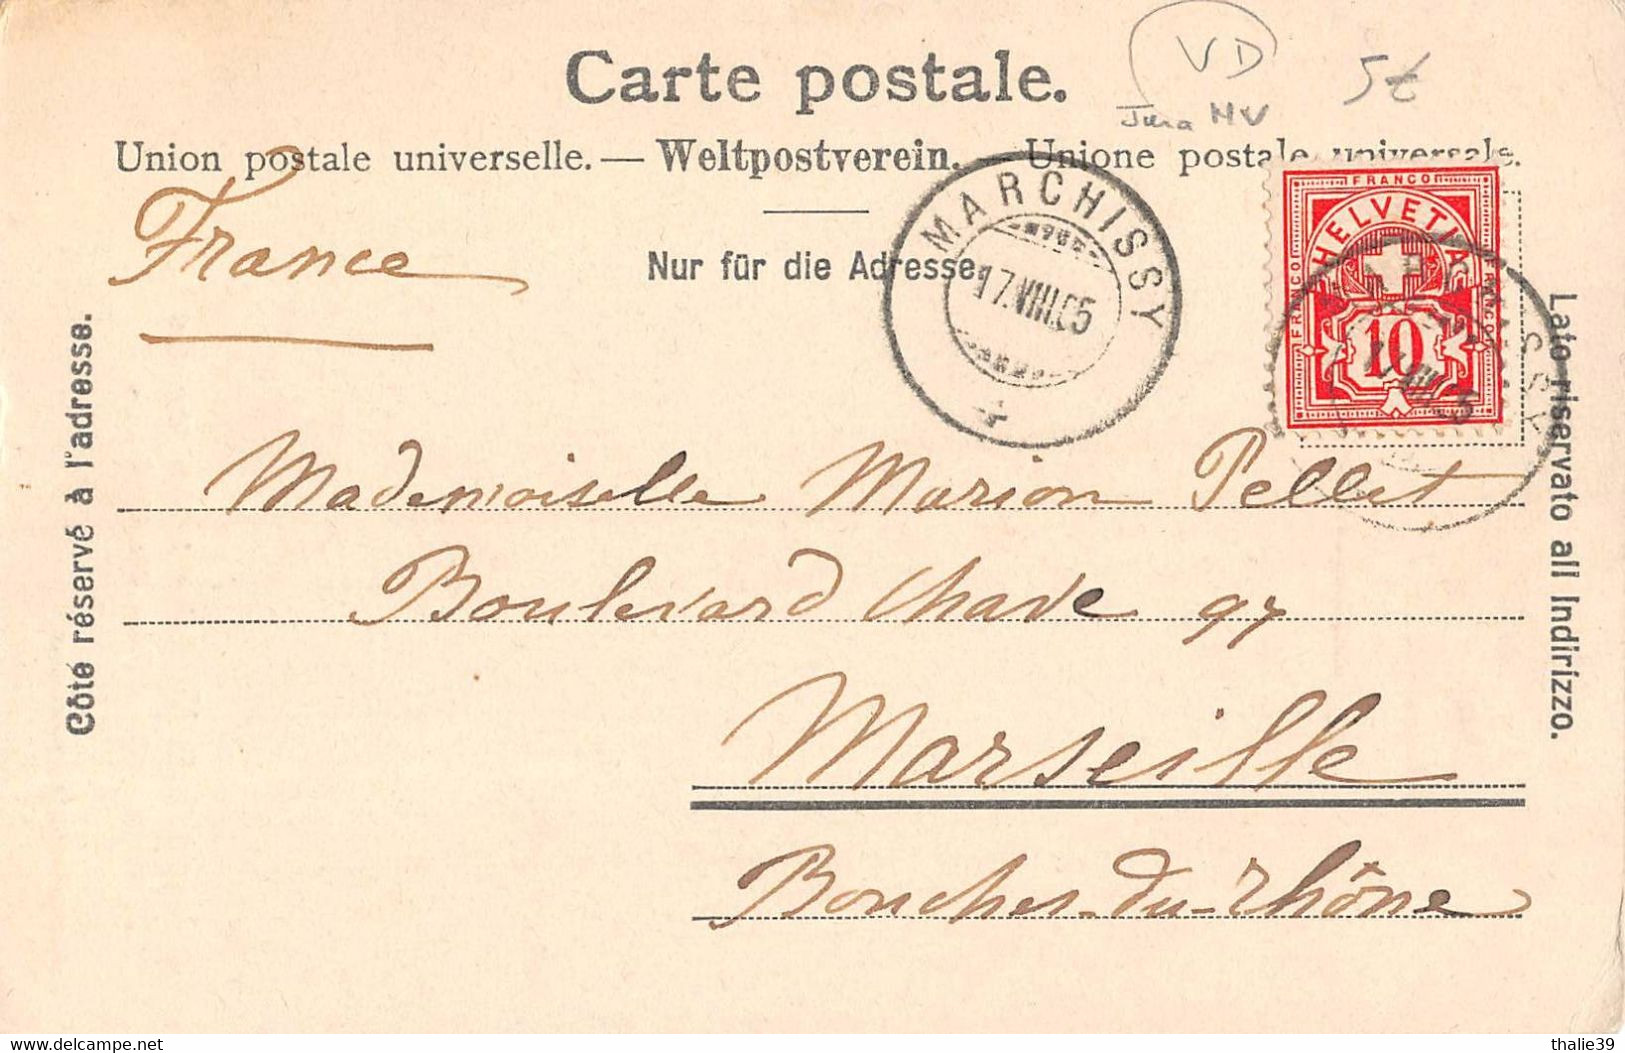 Carte postale.
VD
Jura NV
5€
Union postale universelle. — Weltpostverein. — Unione postale universale.
Nur für die Adresse.
France
MARCHISSY
17.VIII.05
FRANCO
FRANCO
FRANCO
HELVETIA
10
MARCHISSY
17.VIII.05
Côté réservé à l'adresse.
Lato riservato all Indirizzo.
Mademoiselle Marion Pellet
Boulevard Chave 97
Marseille
Bouches-du-Rhône
thalie39